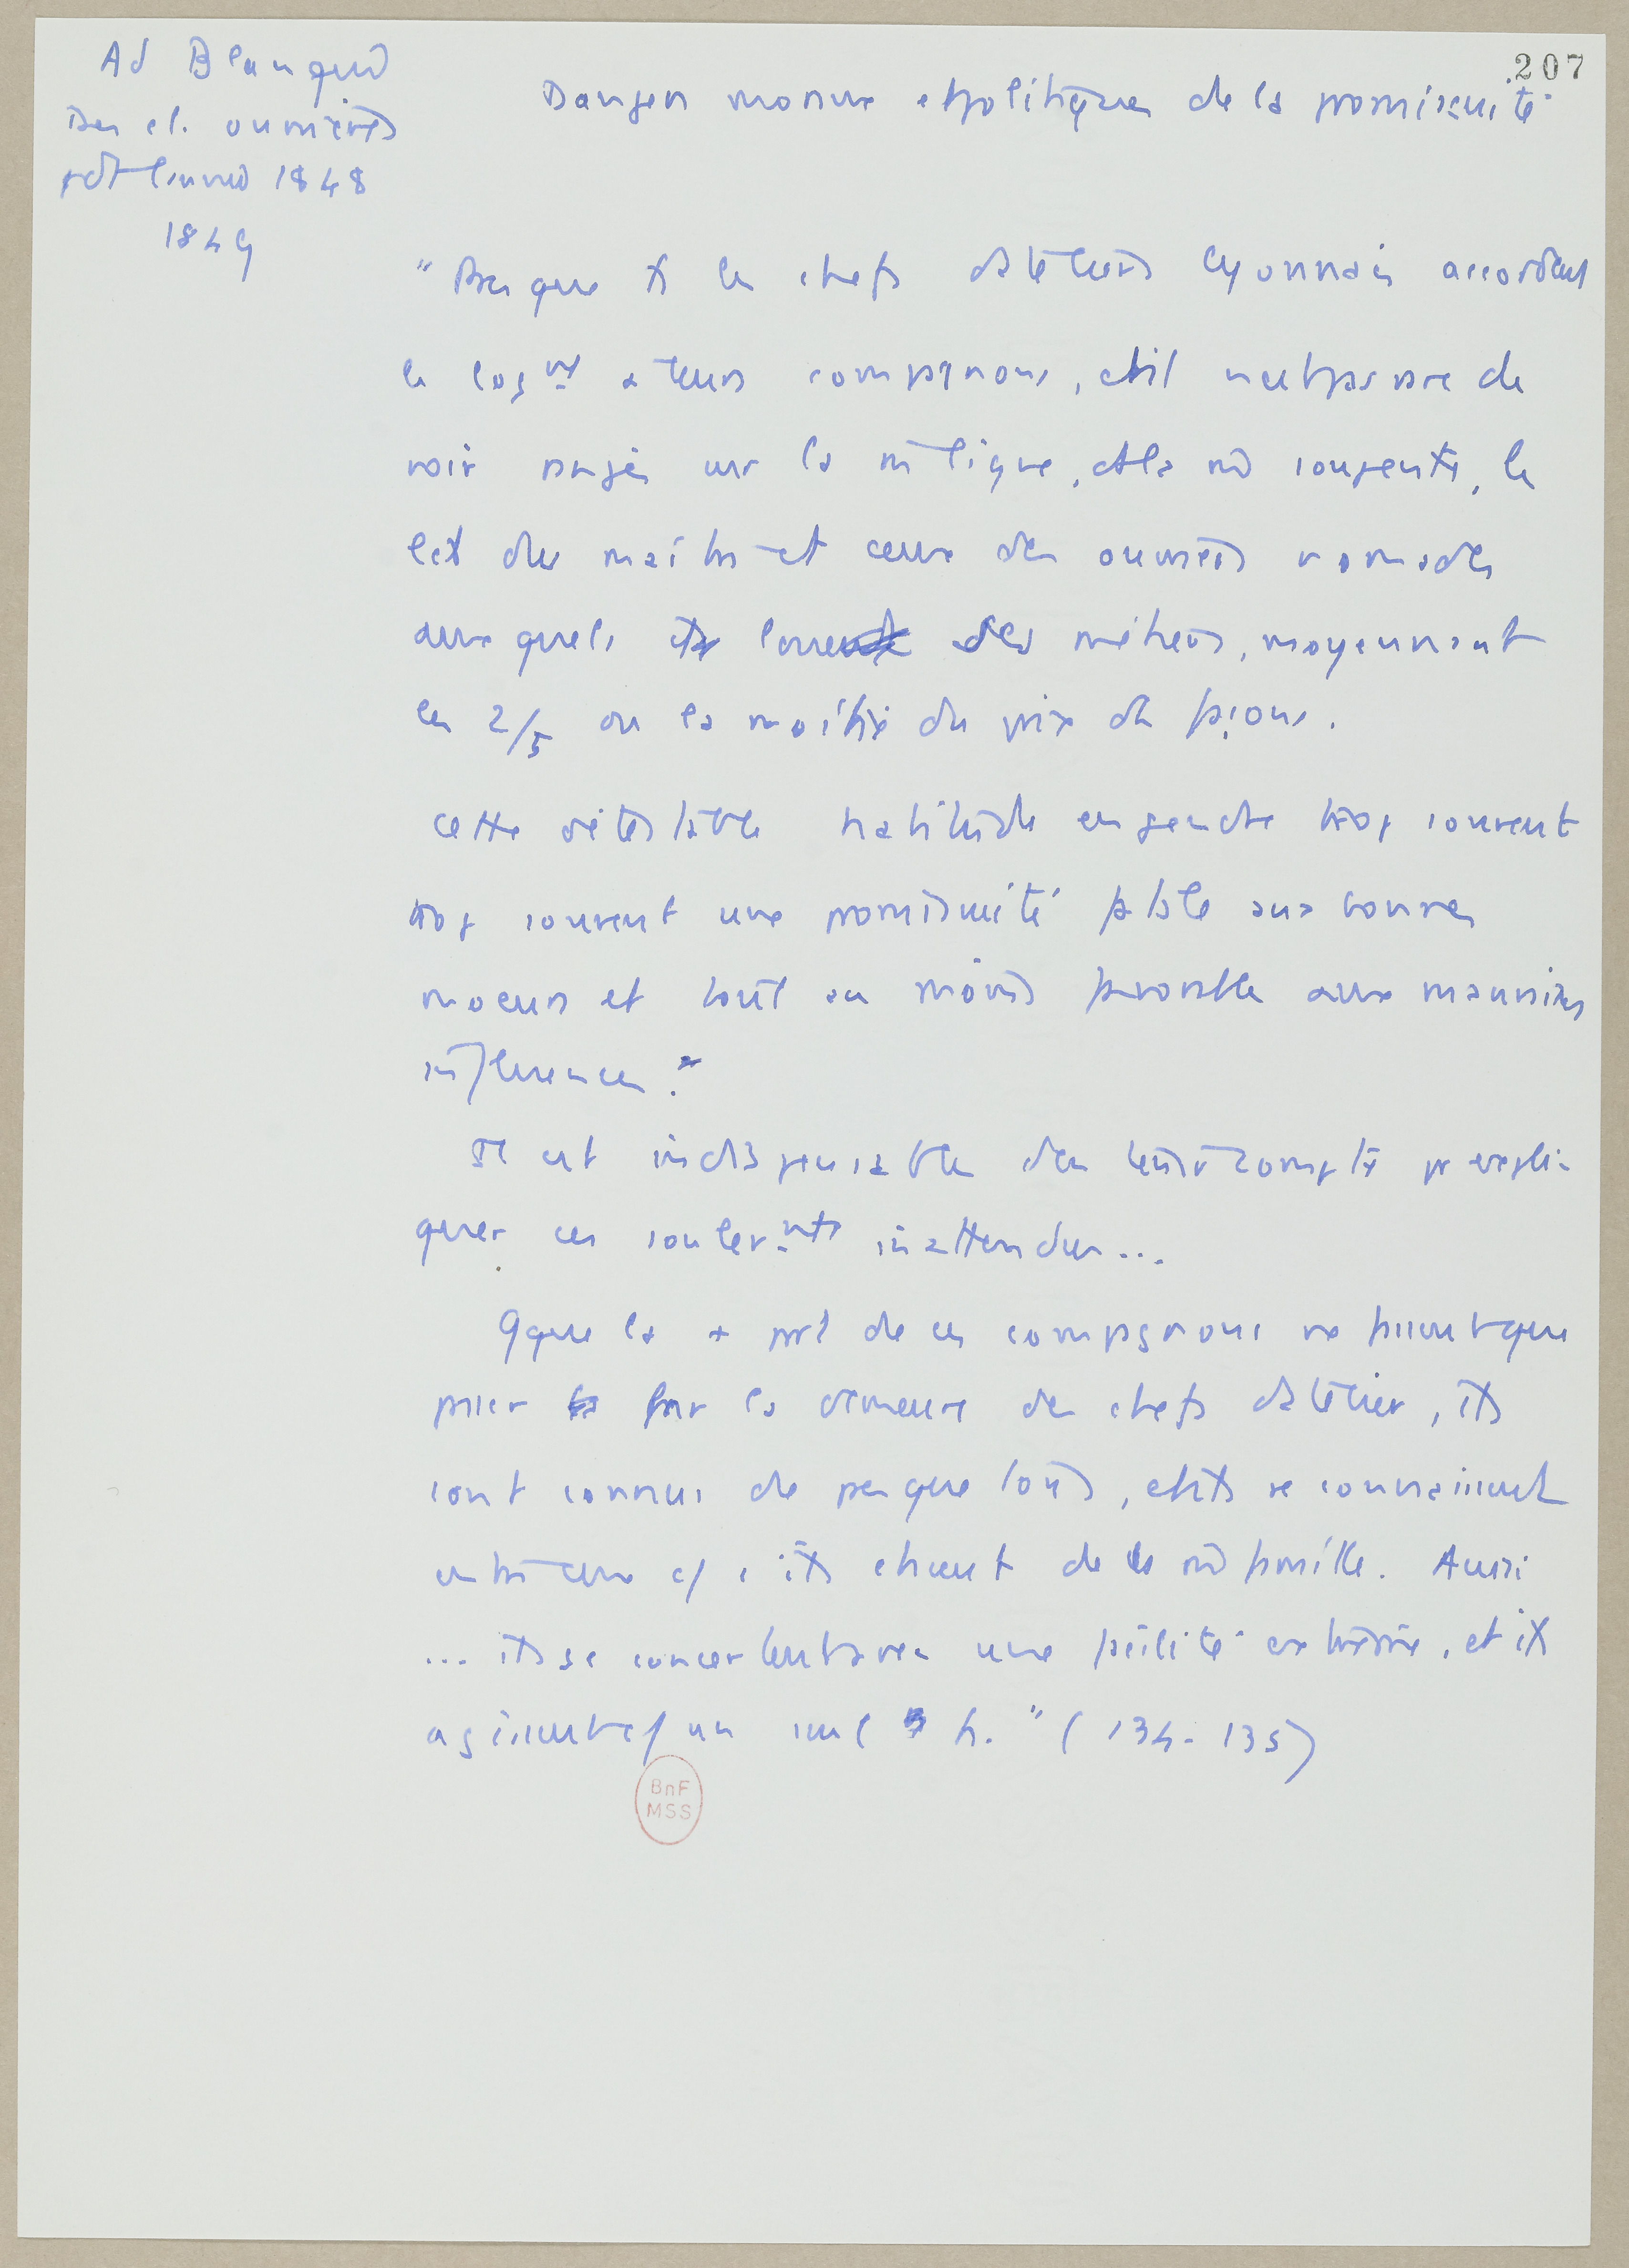 Ad Blanqui
Des cl. ouvrières
pdt l'année 1848
1849
207
Dangers moraux et politiques de la promiscuité
"Presque ts les chefs d'ateliers lyonnais accordent
le logmt à leurs compagnons, et il n'est pas rare de
voir rangés sur la m ligne, et la mê soupente, le
lit du maître et ceux des ouvriers nomades
auxquels ils louent des métiers, moyennant
les 2/5 ou la moitié du prix de façons.
Cette détestable habitude engendre trop souvent
trop souvent une promiscuité fatale aux bonnes
moeurs et tout au moins favorable aux mauvaises
influences."
Il est indispensable d'en tenir compte pr expli-
quer ces soulevmts inattendus...
Qque la + part de ces compagnons ne fissent que
passer par la demeure des chefs d'atelier, ils
sont connus de presque tous, et ils se connaissent
entre eux c/ s'ils étaient de la mê famille. Aussi
... ils se concertent avec une facilité extrême, et ils
agissent c/ un seul h." (134-135)
BnF
MSS